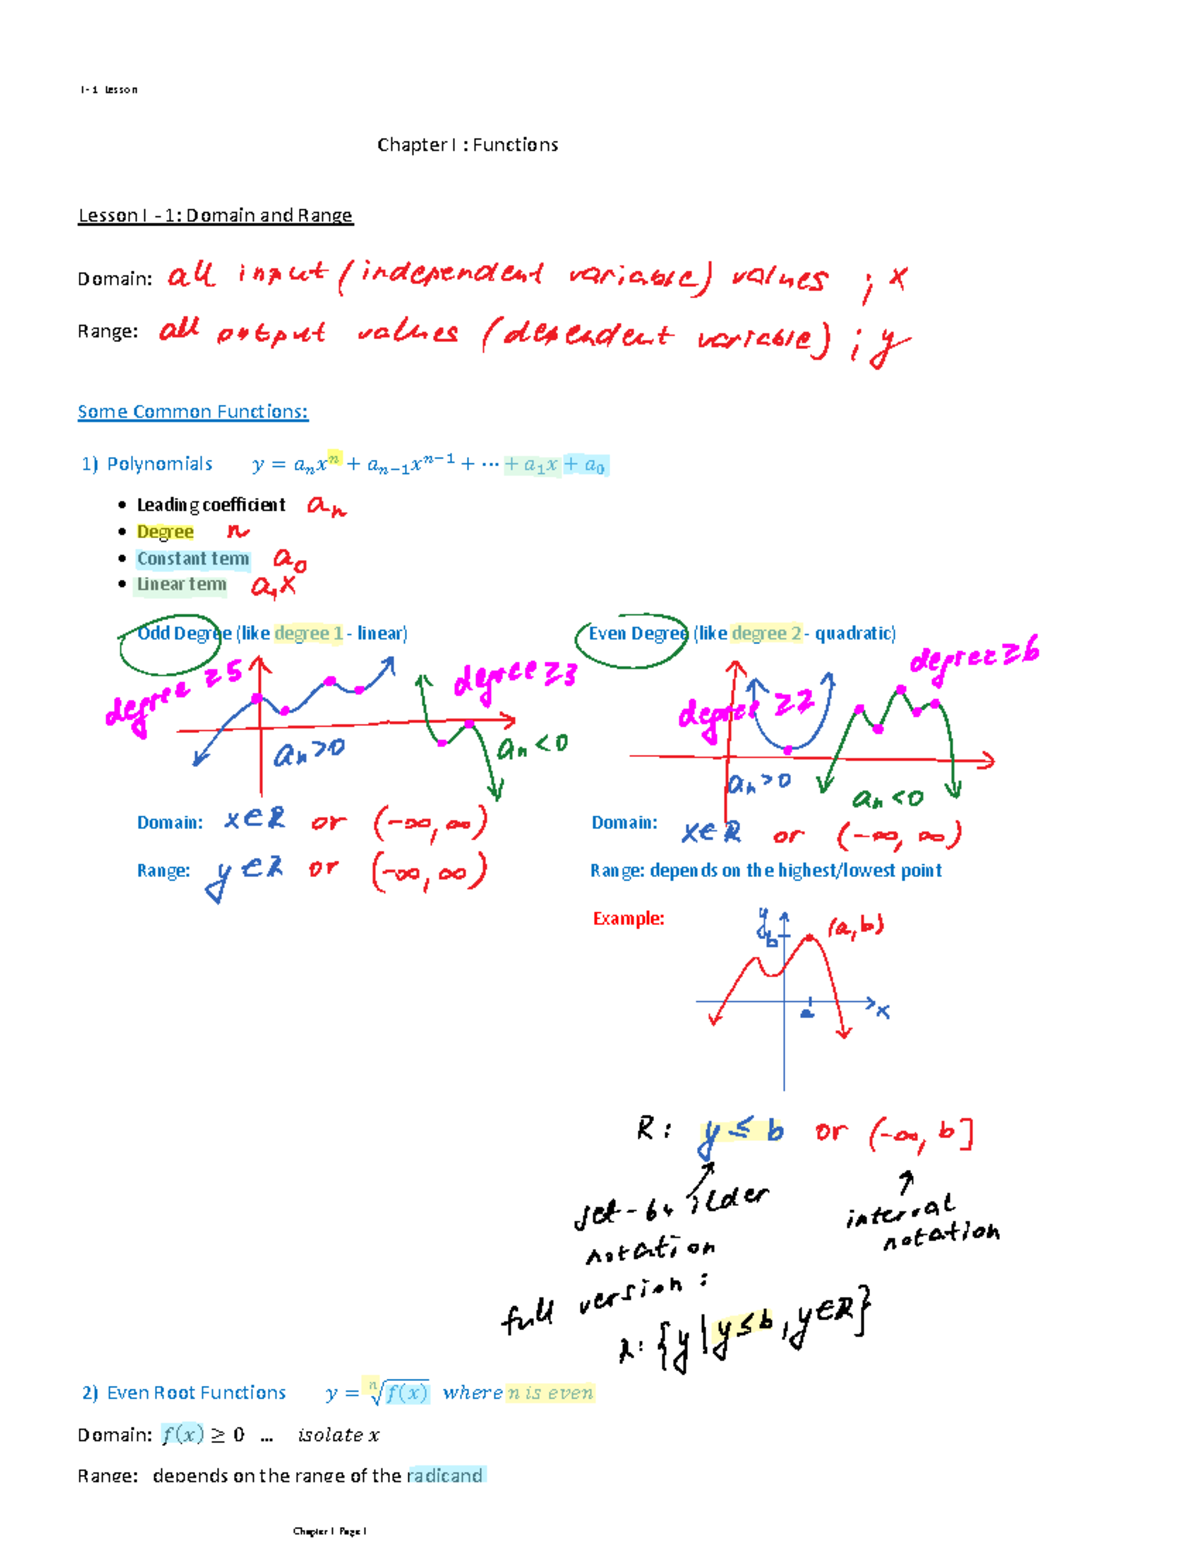 I-1 Lesson
Chapter I : Functions
Lesson I - 1: Domain and Range
Domain: all input (independent variable) values ; x
Range: all output values (dependent variable) ; y
Some Common Functions:
1) Polynomials y = aₙxⁿ + aₙ₋₁xⁿ⁻¹ + ⋯ + a₁x + a₀
• Leading coefficient aₙ
• Degree n
• Constant term a₀
• Linear term a₁x
Odd Degree (like degree 1 - linear)
degree ≥5
degree ≥3
aₙ>0
aₙ<0
Domain: x∈ℝ or (-∞, ∞)
Range: y∈ℝ or (-∞, ∞)
Even Degree (like degree 2 - quadratic)
degree ≥2
degree ≥6
aₙ>0
aₙ<0
Domain: x∈ℝ or (-∞, ∞)
Range: depends on the highest/lowest point
Example:
y
b
(a,b)
a
x
R: y ≤ b or (-∞, b]
set-builder
notation
interval
notation
full version:
R: {y | y≤b, y∈ℝ}
2) Even Root Functions y = ⁿ√f(x) where n is even
Domain: f(x) ≥ 0 ... isolate x
Range: depends on the range of the radicand
Chapter I Page 1